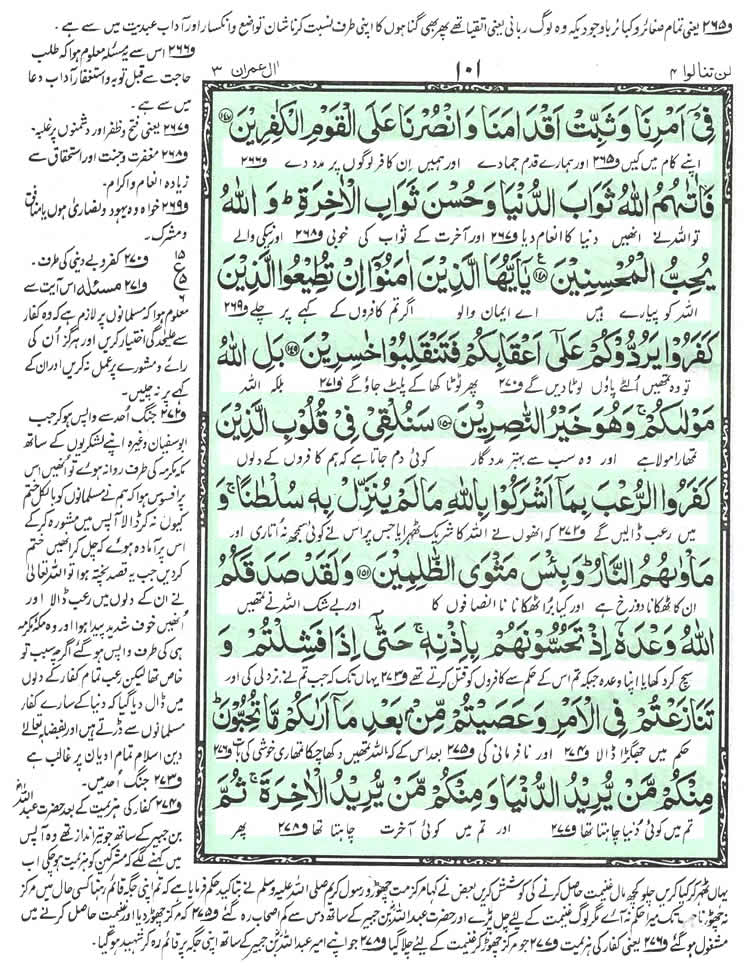 و۲۶۵ یعنی تمام صغائر و کبائر باوجودیکہ وہ لوگ ربانی یعنی اتقیا تھے پھر بھی گناہوں کا اپنی طرف نسبت کرنا شان تواضع و انکسار اور آداب عبدیت میں سے ہے ۔
لن تنالوا ۴
۱۰۱
اٰل عمران ۳
فِیْۤ اَمْرِنَا وَ ثَبِّتْ اَقْدَامَنَا وَ انْصُرْنَا عَلَى الْقَوْمِ الْكٰفِرِیْنَ ﴿۱۴۷﴾
اپنے کام میں کیں و۲۶۵ اور ہمارے قدم جما دے اور ہمیں ان کافر لوگوں پر مدد دے و۲۶۶
فَاٰتٰىهُمُ اللّٰهُ ثَوَابَ الدُّنْیَا وَ حُسْنَ ثَوَابِ الْاٰخِرَةِؕ وَ اللّٰهُ
تو اللہ نے انھیں دنیا کا انعام دیا و۲۶۷ اور آخرت کے ثواب کی خوبی و۲۶۸ اور نیکی والے
یُحِبُّ الْمُحْسِنِیْنَ ﴿۱۴۸﴾ یٰۤاَیُّهَا الَّذِیْنَ اٰمَنُوْۤا اِنْ تُطِیْعُوا الَّذِیْنَ
اللہ کو پیارے ہیں اے ایمان والو اگر تم کافروں کے کہے پر چلے و۲۶۹
كَفَرُوْا یَرُدُّوْكُمْ عَلٰۤى اَعْقَابِكُمْ فَتَنْقَلِبُوْا خٰسِرِیْنَ ﴿۱۴۹﴾ بَلِ اللّٰهُ
تو وہ تمھیں الٹے پاؤں لوٹا دیں گے و۲۷۰ پھر ٹوٹا کھا کے پلٹ جاؤ گے و۲۷۱ بلکہ اللہ
مَوْلٰىكُمْۚ وَ هُوَ خَیْرُ النّٰصِرِیْنَ ﴿۱۵۰﴾ سَنُلْقِیْ فِیْ قُلُوْبِ الَّذِیْنَ
تمھارا مولا ہے اور وہ سب سے بہتر مددگار کوئی دم جاتا ہے کہ ہم کافروں کے دلوں
كَفَرُوا الرُّعْبَ بِمَاۤ اَشْرَكُوْا بِاللّٰهِ مَا لَمْ یُنَزِّلْ بِهٖ سُلْطٰنًاۚ وَ
میں رعب ڈالیں گے و۲۷۲ کہ انھوں نے اللہ کا شریک ٹھہرایا جس پر اس نے کوئی سمجھ نہ اتاری اور
مَاْوٰىهُمُ النَّارُؕ وَ بِئْسَ مَثْوَى الظّٰلِمِیْنَ ﴿۱۵۱﴾ وَ لَقَدْ صَدَقَكُمُ
ان کا ٹھکانا دوزخ ہے اور کیا برا ٹھکانا نا انصافوں کا اور بے شک اللہ نے تمھیں
اللّٰهُ وَعْدَهٗۤ اِذْ تَحُسُّوْنَهُمْ بِاِذْنِهٖۚ حَتّٰۤى اِذَا فَشِلْتُمْ وَ
سچ کر دکھایا اپنا وعدہ جبکہ تم اس کے حکم سے کافروں کو قتل کرتے تھے و۲۷۳ یہاں تک کہ جب تم نے بزدلی کی اور
تَنَازَعْتُمْ فِی الْاَمْرِ وَ عَصَیْتُمْ مِّنْۢ بَعْدِ مَاۤ اَرٰىكُمْ مَّا تُحِبُّوْنَؕ
حکم میں جھگڑا ڈالا و۲۷۴ اور نافرمانی کی و۲۷۵ بعد اس کے کہ اللہ تمھیں دکھا چکا تمھاری خوشی کی بات و۲۷۶
مِنْكُمْ مَّنْ یُّرِیْدُ الدُّنْیَا وَ مِنْكُمْ مَّنْ یُّرِیْدُ الْاٰخِرَةَۚ ثُمَّ
تم میں کوئی دنیا چاہتا تھا و۲۷۷ اور تم میں کوئی آخرت چاہتا تھا و۲۷۸ پھر
و۲۶۶ اس سے یہ مسئلہ معلوم ہوا کہ طلب
حاجت سے قبل توبہ و استغفار آداب دعا
میں سے ہے ۔
و۲۶۷ یعنی فتح و ظفر اور دشمنوں پر غلبہ ۔
و۲۶۸ مغفرت و جنت اور استحقاق سے
زیادہ انعام و اکرام ۔
و۲۶۹ خواہ وہ یہود و نصاریٰ ہوں یا منافق
و مشرک ۔
و۲۷۰ کفر و بے دینی کی طرف ۔
۱۵
ع
۵
۶
و۲۷۱ مسئلہ اس آیت سے
معلوم ہوا کہ مسلمانوں پر لازم ہے کہ وہ کفار
سے علیحدگی اختیار کریں اور ہرگز اُن کی
رائے و مشورے پر عمل نہ کریں اور ان کے
کہے پر نہ چلیں ۔
و۲۷۲ جنگ اُحد سے واپس ہو کر جب
ابوسفیان وغیرہ اپنے لشکریوں کے ساتھ
مکہ مکرمہ کی طرف روانہ ہوئے تو انھیں اس
پر افسوس ہوا کہ ہم نے مسلمانوں کو بالکل ختم
کیوں نہ کر ڈالا آپس میں مشورہ کر کے
اس پر آمادہ ہوئے کہ چل کر انھیں ختم
کر دیں جب یہ قصد پختہ ہوا تو اللہ تعالیٰ
نے ان کے دلوں میں رعب ڈالا اور
اُنھیں خوف شدید پیدا ہوا اور وہ مکہ مکرمہ
ہی کی طرف واپس ہو گئے اگرچہ سبب تو
خاص تھا لیکن رعب تمام کفار کے دلوں
میں ڈال دیا گیا کہ دنیا کے سارے کفار
مسلمانوں سے ڈرتے ہیں اور بفضلہ تعالیٰ
دین اسلام تمام ادیان پر غالب ہے
و۲۷۳ جنگ اُحد میں ۔
و۲۷۴ کفار کی ہزیمت کے بعد حضرت عبداللہ
بن جبیر کے ساتھ جو تیر انداز تھے وہ آپس
میں کہنے لگے کہ مشرکین کو ہزیمت ہو چکی اب
یہاں ٹھہر کر کیا کریں چلو کچھ مال غنیمت حاصل کرنے کی کوشش کریں بعض نے کہا مرکز مت چھوڑو رسول کریم صلی اللہ علیہ وسلم نے بتاکید حکم فرمایا ہے کہ تم اپنی جگہ قائم رہنا کسی حال میں مرکز
نہ چھوڑنا جب تک میرا حکم نہ آئے مگر لوگ غنیمت کے لئے چل پڑے اور حضرت عبداللہ بن جبیر کے ساتھ دس سے کم اصحاب رہ گئے و۲۷۵ کہ مرکز چھوڑ دیا اور غنیمت حاصل کرنے میں
مشغول ہو گئے و۲۷۶ یعنی کفار کی ہزیمت و۲۷۷ جو مرکز چھوڑ کر غنیمت کے لئے چلا گیا و۲۷۸ جو اپنے امیر عبداللہ بن جبیر کے ساتھ اپنی جگہ پر قائم رہ کر شہید ہو گیا ۔